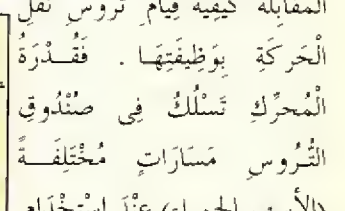 المقابلة كيفية قيام تروس نقل
الْحَركَةِ بِوَظِيفَتِهَا . فَقُدْرَةُ
الْمُحرِّكِ تَسْلُكُ فِى صُنْدُوقِ
التُّرُوسِ مَسَارَاتٍ مُخْتَلِفَةً
عِنْدَ اسْتِخْدَامِ